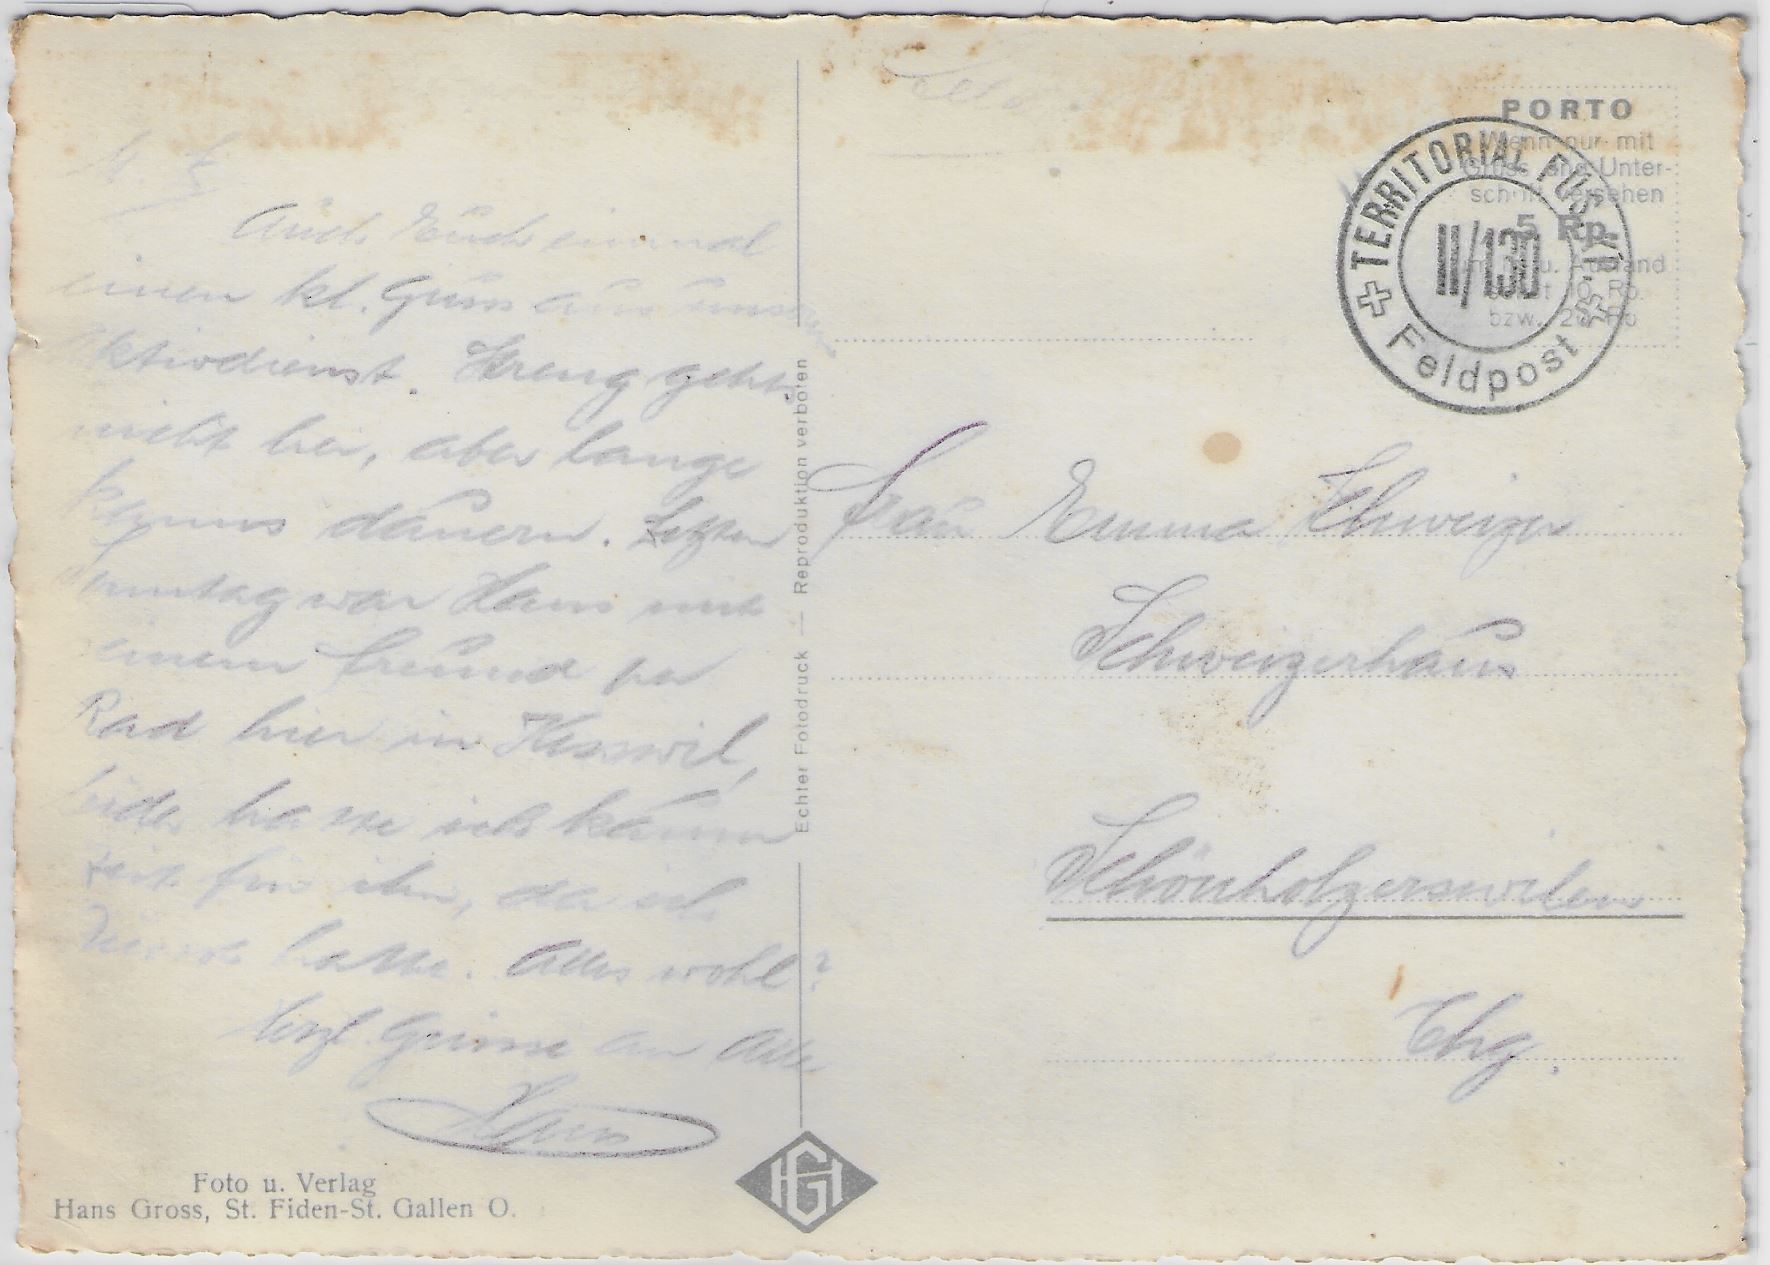 M. L.
Auch Euch einmal
einen kl. Gruss aus unserem
Aktivdienst. Streng geht's
nicht hier, aber lange
kanns dauern. Letzten
Sonntag war Hans mit
einem Freund per
Rad hier in Kesswil,
leider hatte ich kaum
Zeit für ihn, da ich
Dienst hatte. Alles wohl?
Herzl. Grüsse an Alle
Hans
Foto u. Verlag
Hans Gross, St. Fiden-St. Gallen O.
Echter Fotodruck — Reproduktion verboten
HG
PORTO
Wenn nur mit
Gruss und Unter-
schrift versehen
5 Rp.
sonst 10 Rp.
bzw. 20 Rp
TERRITORIAL FÜS. KP.
II/130
Feldpost
Frau Emma Schweizer
Schweizerhaus
Schönholzerswilen
Thg.